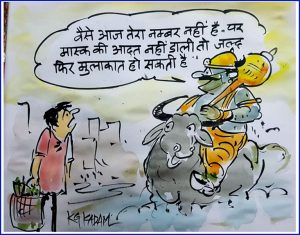 वैसे आज तेरा नम्बर नहीं है. पर
मास्क की आदत नहीं डाली तो जल्द
फिर मुलाकात हो सकती है
KG KADAM